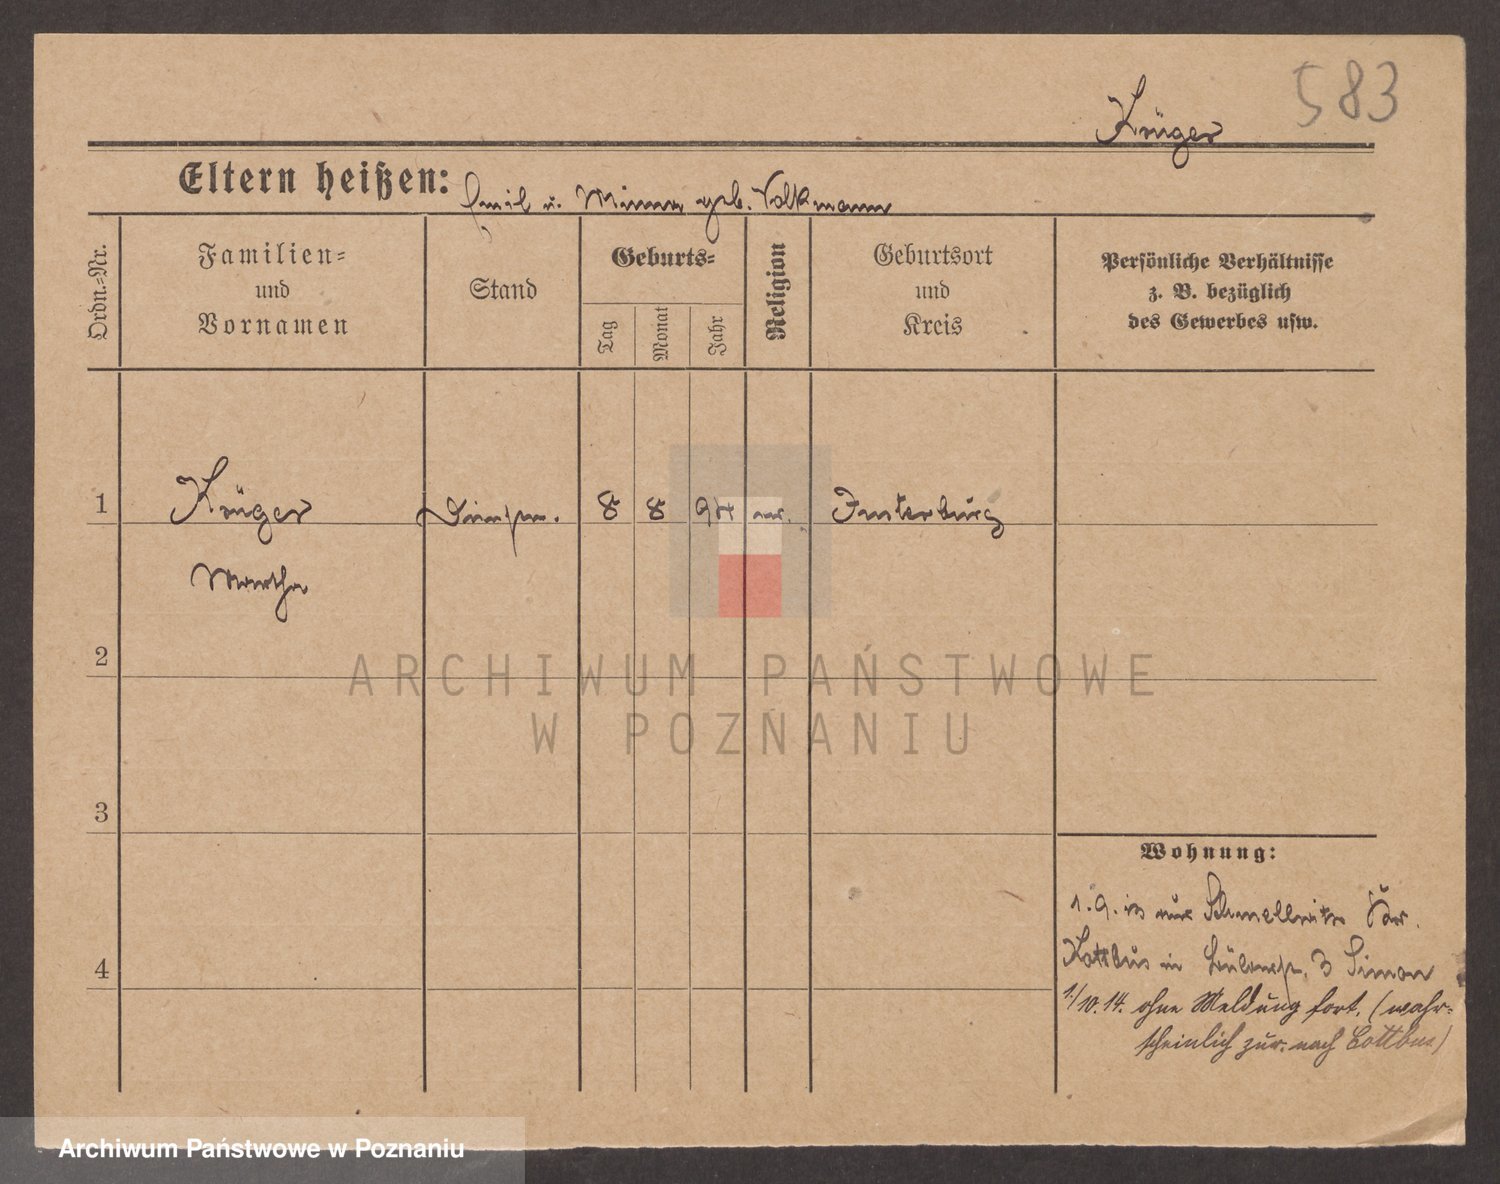 583
Krüger
Eltern heißen: Emil u. Minna geb. Volkmann
Ordn.-Nr.
Familien-
und
Vornamen
Stand
Geburts-
Tag
Monat
Jahr
Religion
Geburtsort
und
Kreis
Persönliche Verhältnisse
z. B. bezüglich
des Gewerbes usw.
1 Krüger 8 8 94 Insterburg
Martha
2
ARCHIWUM PAŃSTWOWE
W POZNANIU
3
Wohnung:
1. 9. 13 aus Schmellwitz Kr.
4
Kottbus in 3 Simon
1./10.14. ohne Meldung fort. (wahr-
scheinlich zur. nach Cottbus)
Archiwum Państwowe w Poznaniu